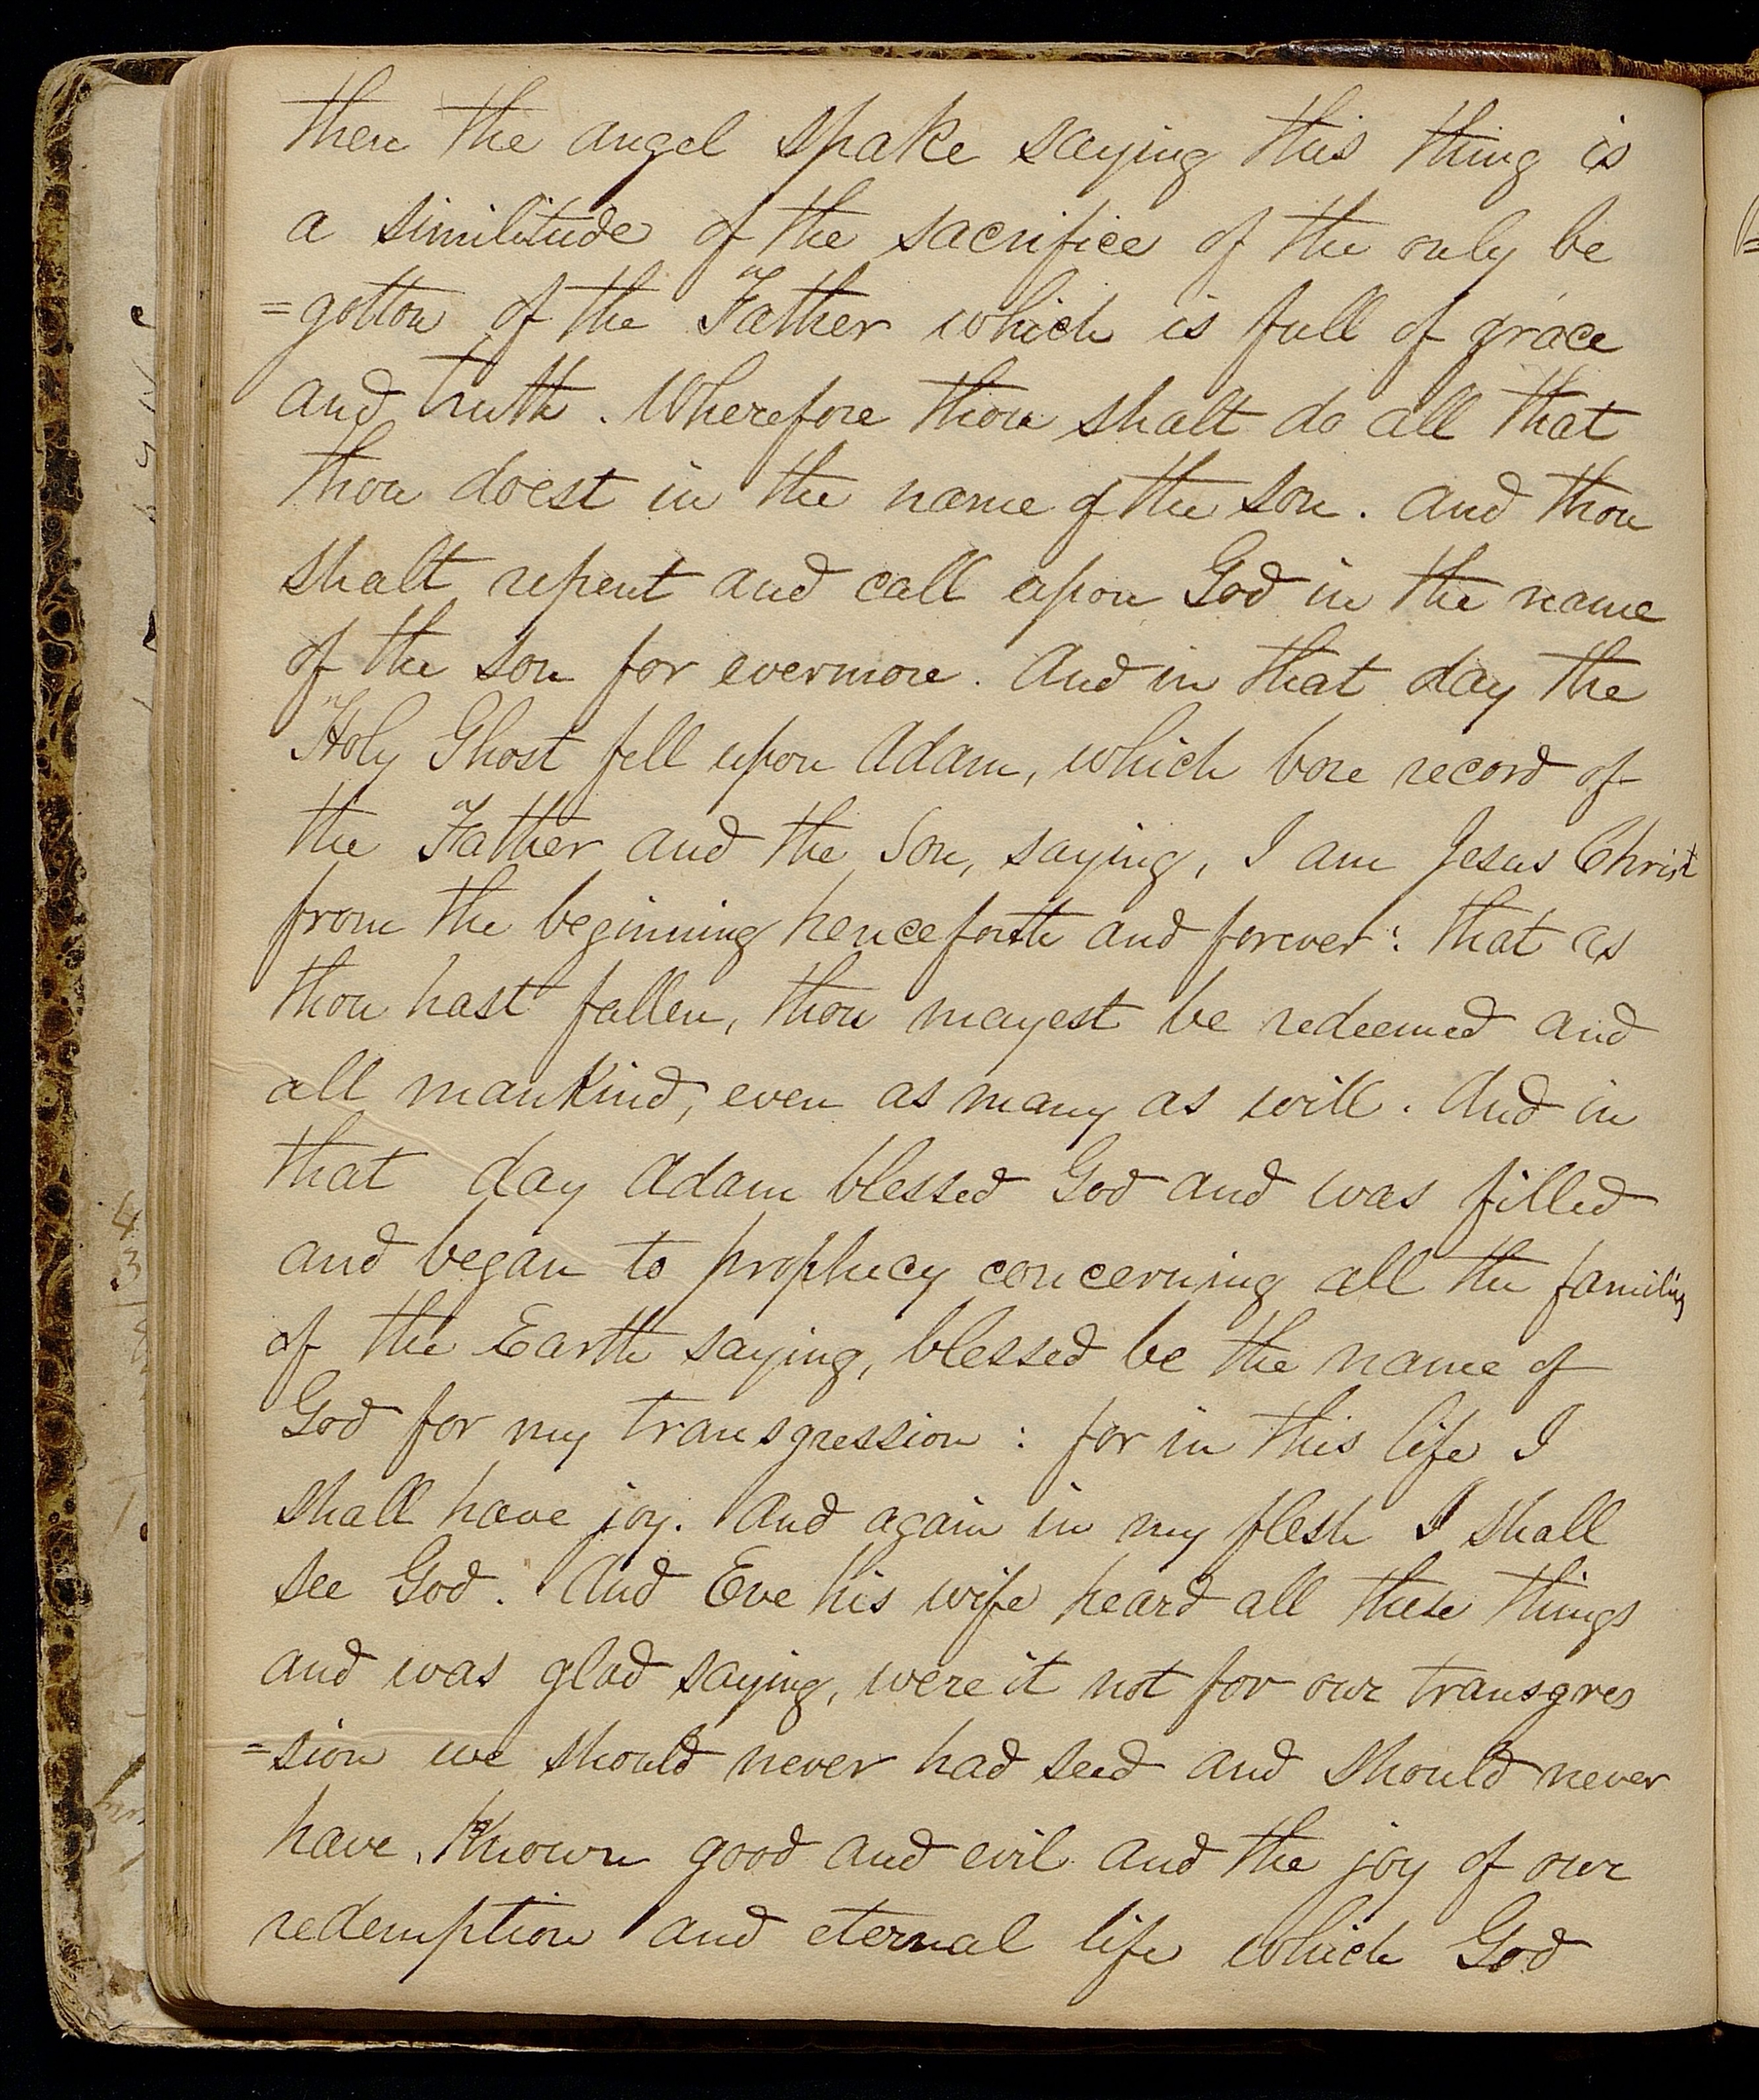 then the angel spake saying this thing is
a similitude of the sacrifice of the only be
=gotton of the Father which is full of grace
and truth. Wherefore thou shalt do all that
thou doest in the name of the son. and thou
shalt repent and call upon God in the name
of the son for evermore. And in that day the
Holy Ghost fell upon Adam, which bore record of
the Father and the Son, saying, I am Jesus Christ
from the beginning henceforth and forever: that as
thou hast fallen, thou mayest be redeemed and
all mankind, even as many as will. And in
that day Adam blessed God and was filled
and began to prophecy concerning all the families
of the Earth saying, blessed be the name of
God for my transgression: for in this life I
shall have joy. And again in my flesh I shall
see God. And Eve his wife heard all these things
and was glad saying, were it not for our transgres
=sion we should never had seed and should never
have known good and evil and the joy of our
redemption and eternal life which God